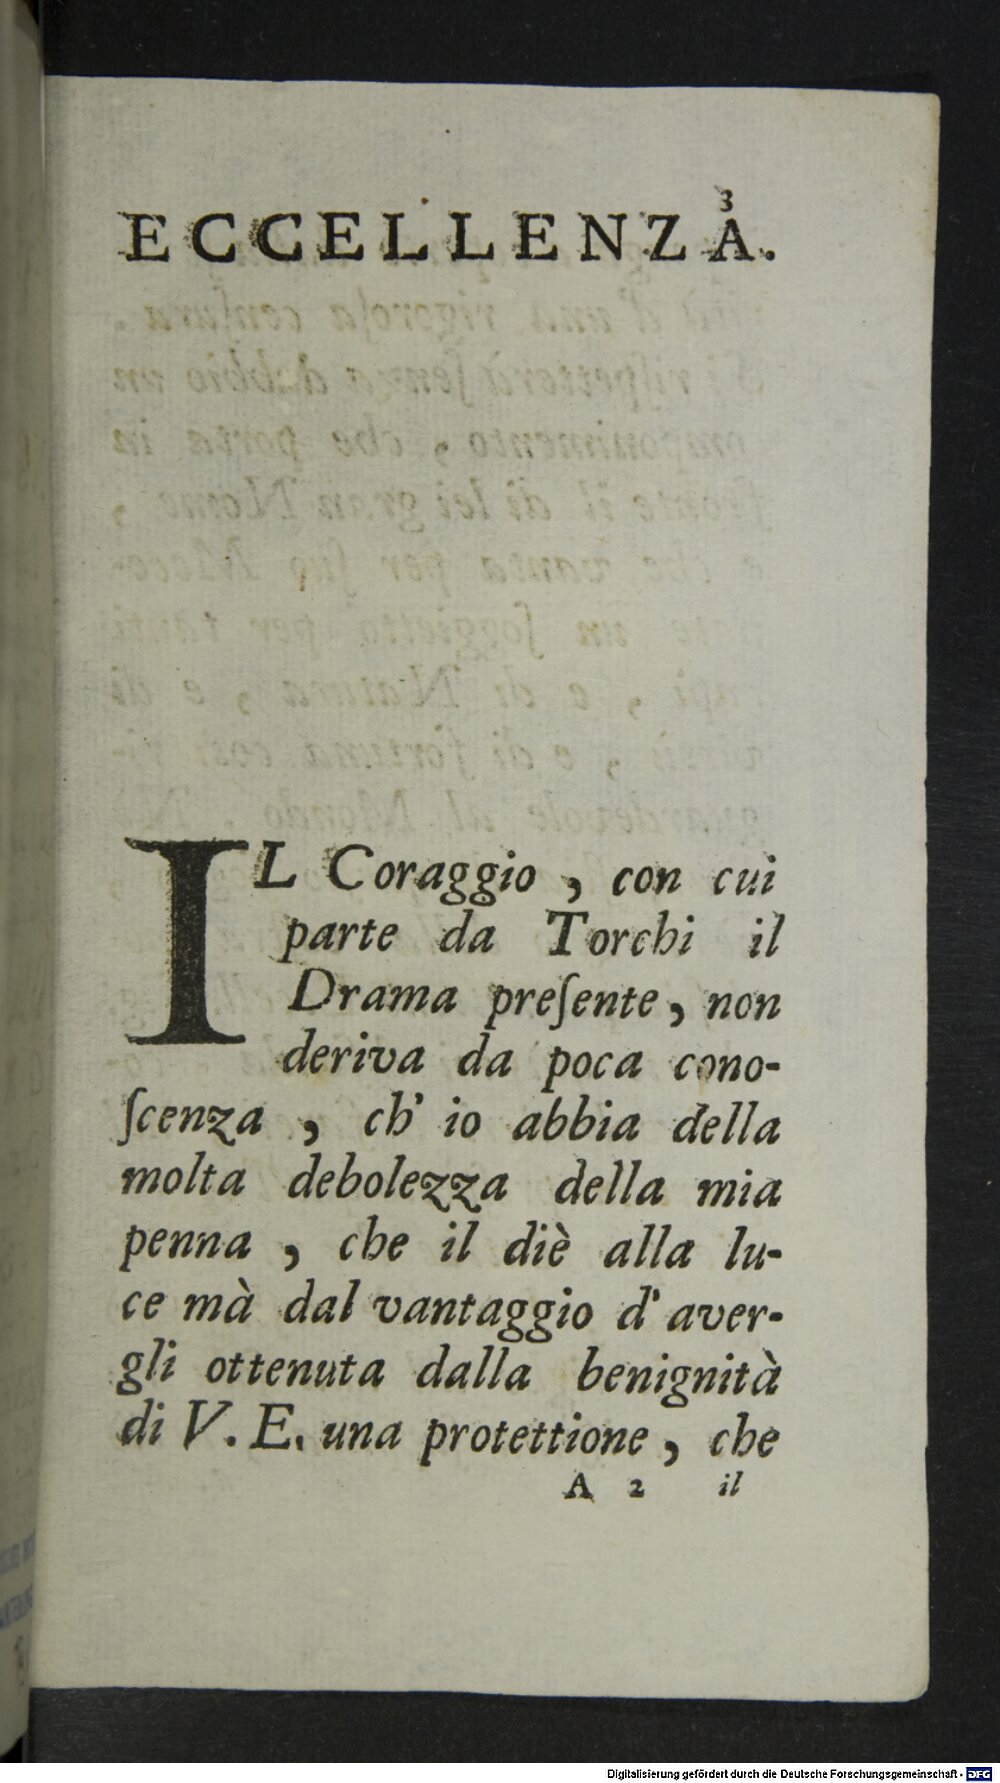 3
ECCELLENZA.
IL Coraggio, con cui
parte da Torchi il
Drama preſente, non
deriva da poca cono-
ſcenza, ch' io abbia della
molta debolezza della mia
penna, che il diè alla lu-
ce mà dal vantaggio d' aver-
gli ottenuta dalla benignità
di V. E. una protettione, che
A 2 il
Digitalisierung gefördert durch die Deutsche Forschungsgemeinschaft - DFG